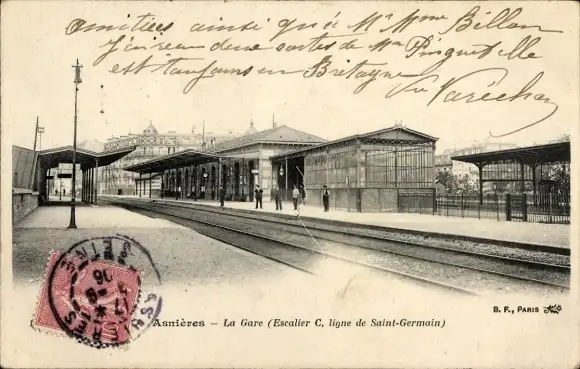 Amitiés ainsi qu'à Mr Mme Billon
J'ai reçu deux sortes de Mme Pinguetville
est toujours en Bretagne
Varéchan
Asnières – La Gare (Escalier C, ligne de Saint-Germain)
B. F., Paris
ASNIERES